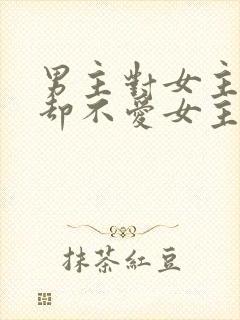 男主對女主
却不愛女主
抹茶紅豆